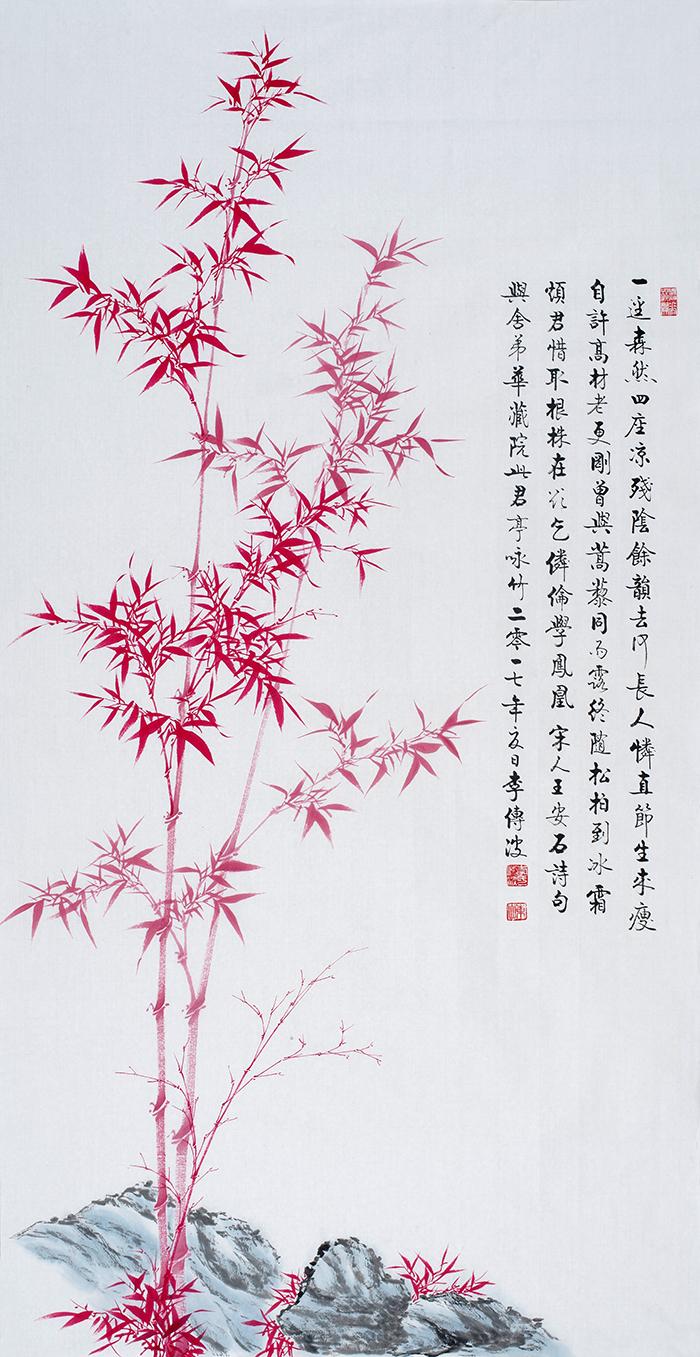 一逕森然四座凉殘陰餘韻去何長人憐直節生來瘦
自許高材老更剛曾與蒿藜同雨露終隨松柏到冰霜
煩君惜取根株在欲乞憐倫學鳳凰 宋人王安石詩句
與舍弟華藏院此君亭咏竹二零一七年夏日李傳波